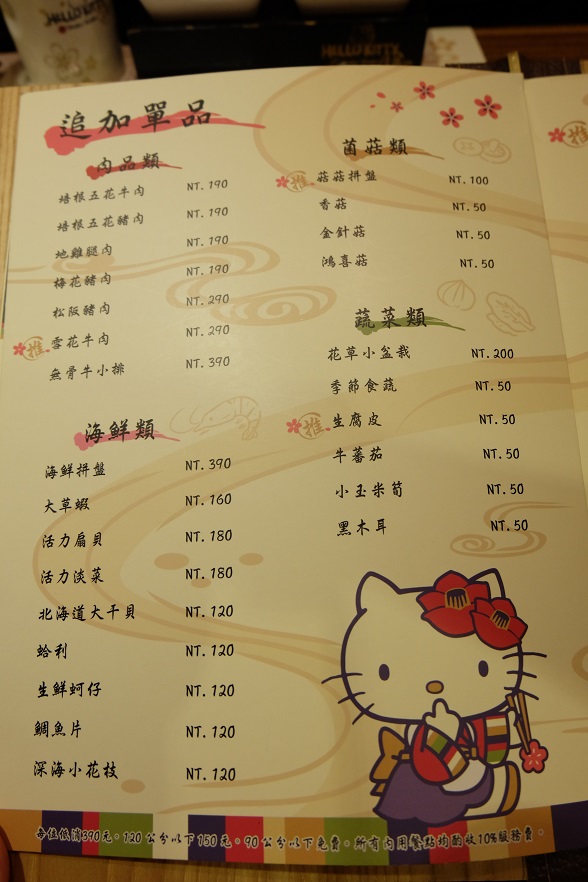 HELLO KITTY
追加單品
肉品類
培根五花牛肉 NT.190
培根五花豬肉 NT.190
地雞腿肉 NT.190
梅花豬肉 NT.190
松阪豬肉 NT.290
推 雪花牛肉 NT.290
無骨牛小排 NT.390
海鮮類
海鮮拼盤 NT.390
大草蝦 NT.160
活力扇貝 NT.180
活力淡菜 NT.180
北海道大干貝 NT.120
蛤利 NT.120
生鮮蚵仔 NT.120
鯛魚片 NT.120
深海小花枝 NT.120
菌菇類
推 菇菇拼盤 NT.100
香菇 NT.50
金針菇 NT.50
鴻喜菇 NT.50
蔬菜類
花草小盆栽 NT.200
季節食蔬 NT.50
推 生腐皮 NT.50
牛蕃茄 NT.50
小玉米筍 NT.50
黑木耳 NT.50
推
每位低消390元。120公分以下150元。90公分以下免費。所有內用餐點均酌收10%服務費。